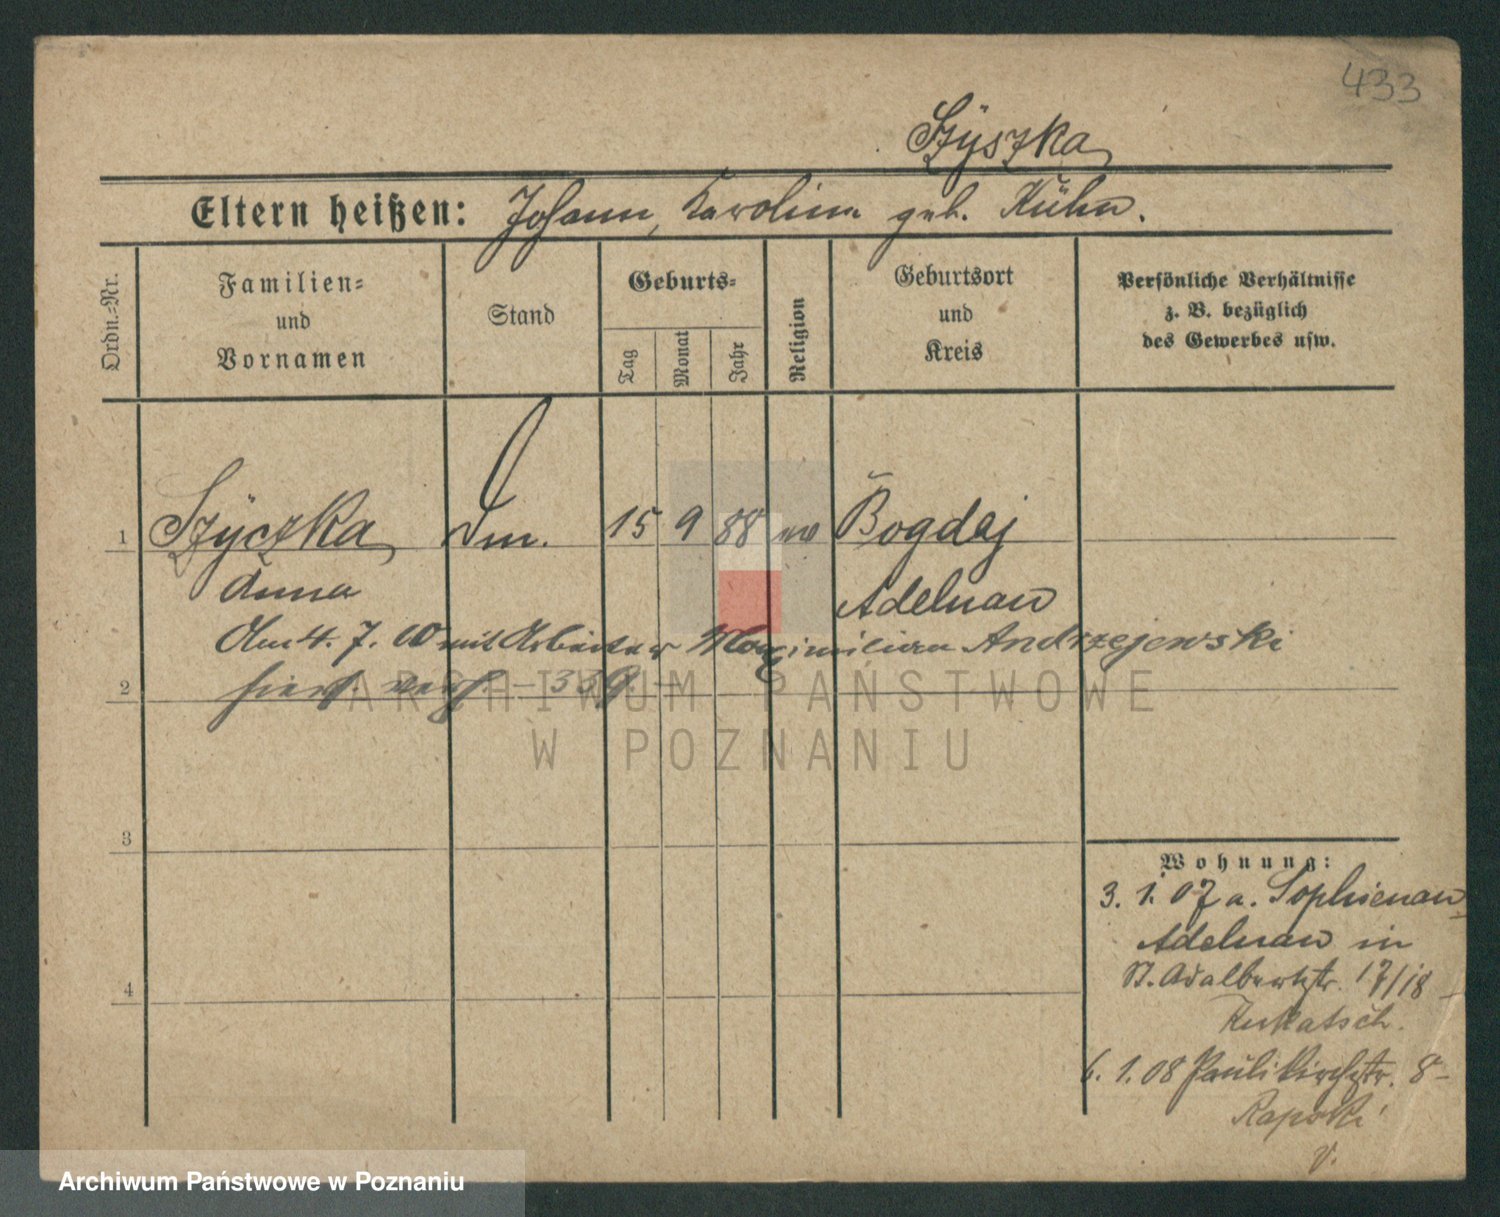 433
Szÿszka
Eltern heißen: Johann, Karolina geb. Kühn.
Ordn.-Nr.
Familien-
und
Vornamen
Stand
Geburts-
Tag
Monat
Jahr
Religion
Geburtsort
und
Kreis
Persönliche Verhältnisse
z. B. bezüglich
des Gewerbes usw.
1 Szÿczka Dm. 15 9 88 Bogdaj
Anna Adelnau
Am 4. 7. mit Arbeiter Maximilian Andrzejewski
2 hiers. verh. 339.
3
4
Wohnung:
3. 1. 07 a. Sophienau
Adelnau in
St. Adalbertstr. 17/18
Kukatsch.
6. 1. 08 Paulikirchstr. 8-
ARCHIWUM PAŃSTWOWE
W POZNANIU
Archiwum Państwowe w Poznaniu